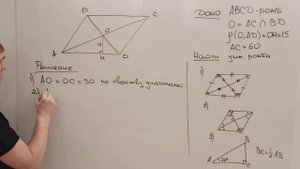 B
C
O
A
H
D
Дано ABCD-ромб
O = AC ∩ BD
ρ(O, AD) = OH = 15
AC = 60
Найти углы ромба
Решение
1) AO = OC = 30 по свойству диагоналей
2)
1)
2)
3)
B
A
C
BC = ½ AB